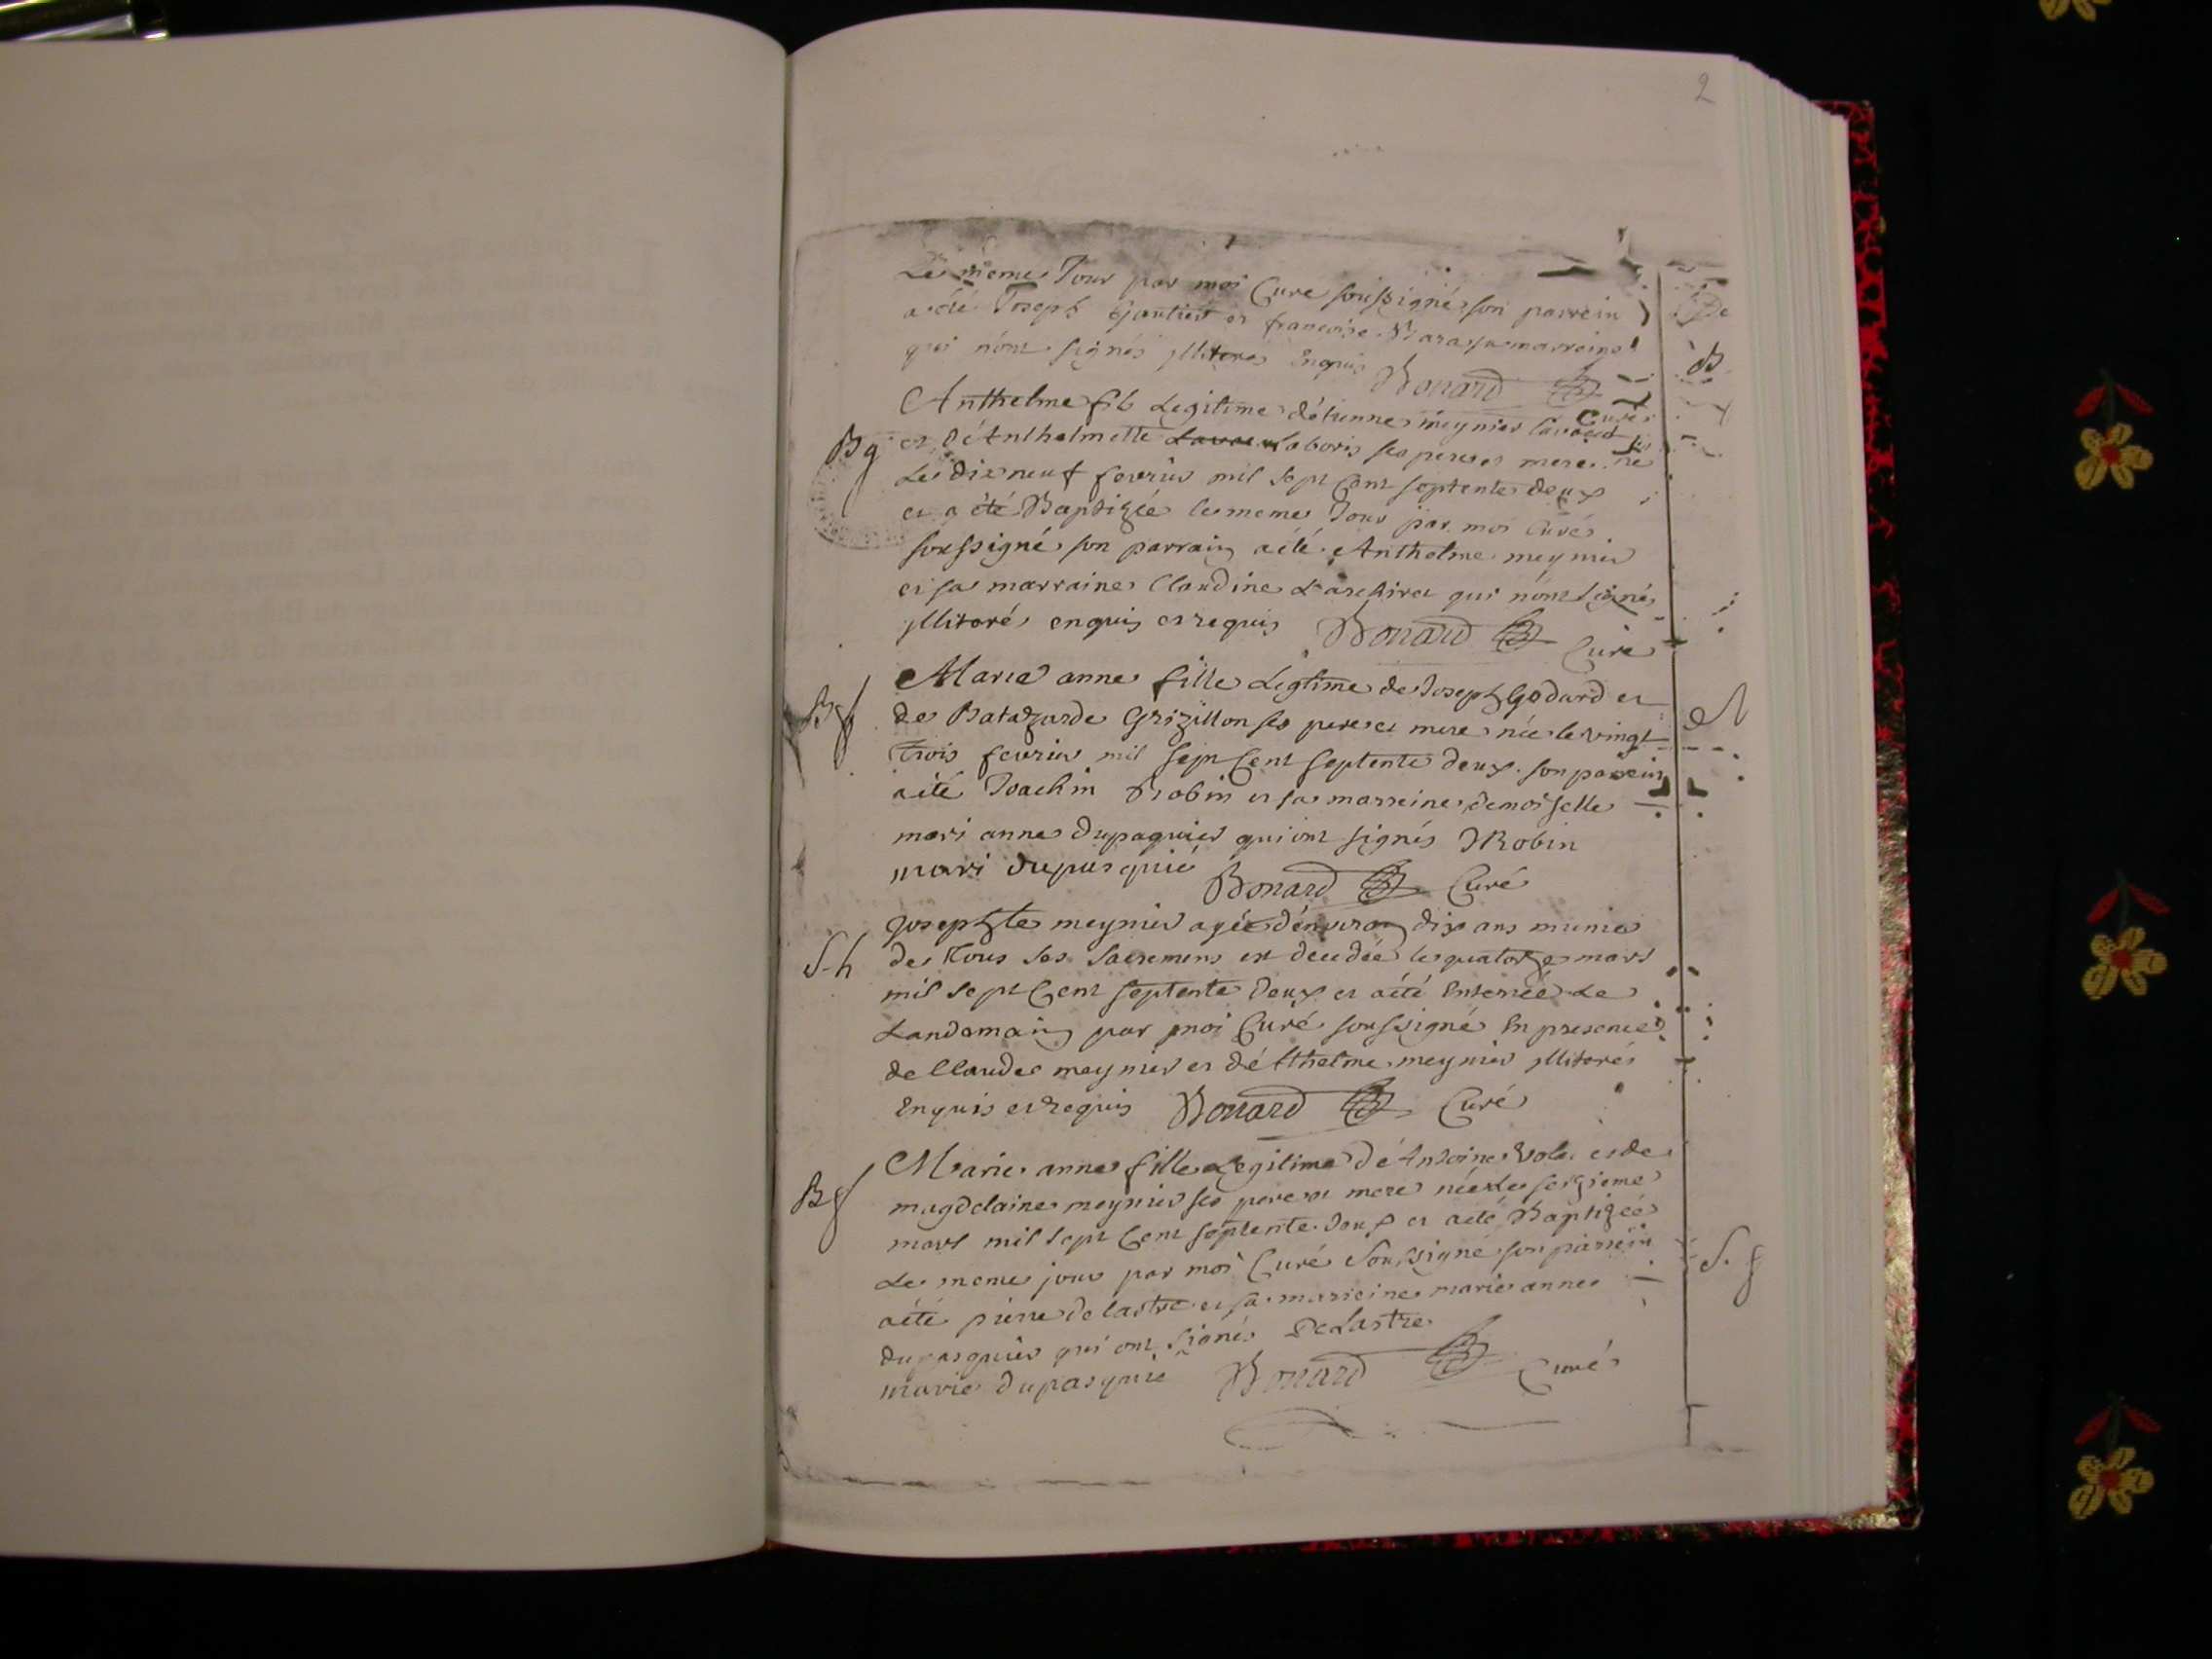 2
Le meme Jour par moi Curé soussigné son parrein
a été Joseph Gautier et francoise sa marraine
qui n'ont signés illiteres Enquis Bonard
Curé
Anthelme fils Legitime d'étienne meynier
B g
et d'Anthelmette Laboris ses pere et mere né
Le dix neuf fevrier mil sept Cent septente deux
et a été Baptizée le meme Jour par moi Curé
soussigné son parrain a été Anthelme meynier
et sa marraine Claudine qui n'ont signé
illitoré enquis et requis Bonard Curé
Marie anne fille Legtime de Joseph Godard et
B f
de Batazarde Grizillon ses pere et mere née le vingt
Trois fevrier mil sept Cent septente deux son parrein
a été Joachin Robin et sa marreine demoiselle
mari anne dupaquier qui ont signés J Robin
mari dupasquié Bonard Curé
Josephte meynier agée d'environ dix ans munie
S. h
de Tous ses Sacremens est decedée le quatorze mars
mil sept Cent septente deux et a été Enterrée Le
Landemain par moi Curé soussigné En presence
de Claude meynier et d'Athelme meynier illitorés
Enquis et requis Bonard Curé
Marie anne fille Legitime d'Antoine et de
B f
magdelaine meynier ses pere et mere née Le seizieme
mars mil sept Cent septente deux et a été Baptizée
Le meme jour par moi Curé Soussigné son parrein
a été pierre delastre et sa marreine marie anne
dupasquier qui ont signés DeLastre
marie dupasquié Bonard Curé
S. f